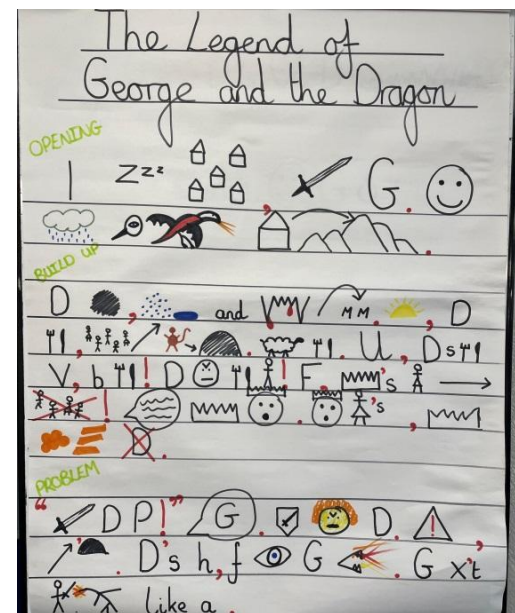 The Legend of
George and the Dragon
OPENING
| Zzzz , G.
.
BUILD UP
D , and MM. , D
, . U, Ds
V, b ! D ! F, 's
! . 's ,
D .
PROBLEM
" D P!" G . D. ! ,
. D's h, f G . G x't
like a .